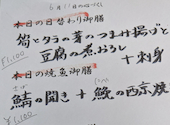 本日の日替わり御膳
筍とタラの芽のつまみ揚げと
豆腐の煮おろし
+刺身
¥1,100
本日の焼魚御膳
鯖の開き+鰆の西京焼
¥1,100